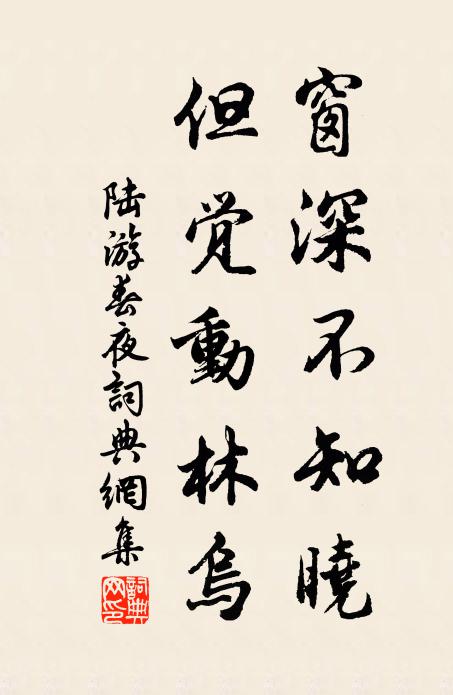 窗深不知曉
但覚動林烏
陸游春夜詞典網集
詞典网印